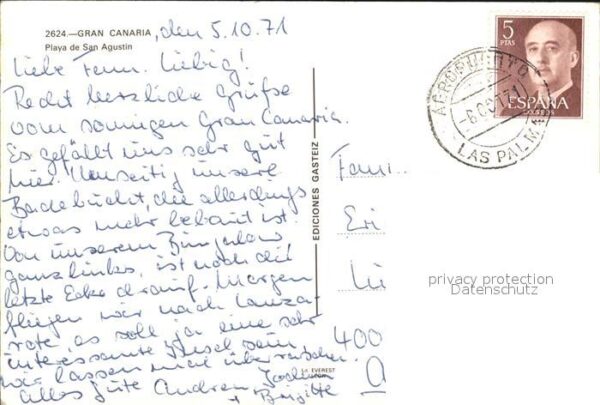 2624.—GRAN CANARIA, den 5.10.71
Playa de San Agustin
Liebe Fam. Liebig!
Recht herzliche Grüße
vom sonnigen Gran Canaria.
Es gefällt uns sehr gut
hier. Umseitig unsere
Badebucht, die allerdings
etwas mehr bebaut ist.
Von unserem Bungalow
ganz links, ist noch die
letzte Ecke drauf. Morgen
fliegen wir nach Lanza-
rote, es soll ja eine sehr
interessante Insel sein,
wir lassen uns überraschen.
Alles Gute Andrea, Jochen
+ Brigitte
EDICIONES GASTEIZ
EVEREST
5
PTAS
ESPAÑA
CORREOS
AEROPUERTO
LAS PALM
Fam
Eri
400
privacy protection
Datenschutz